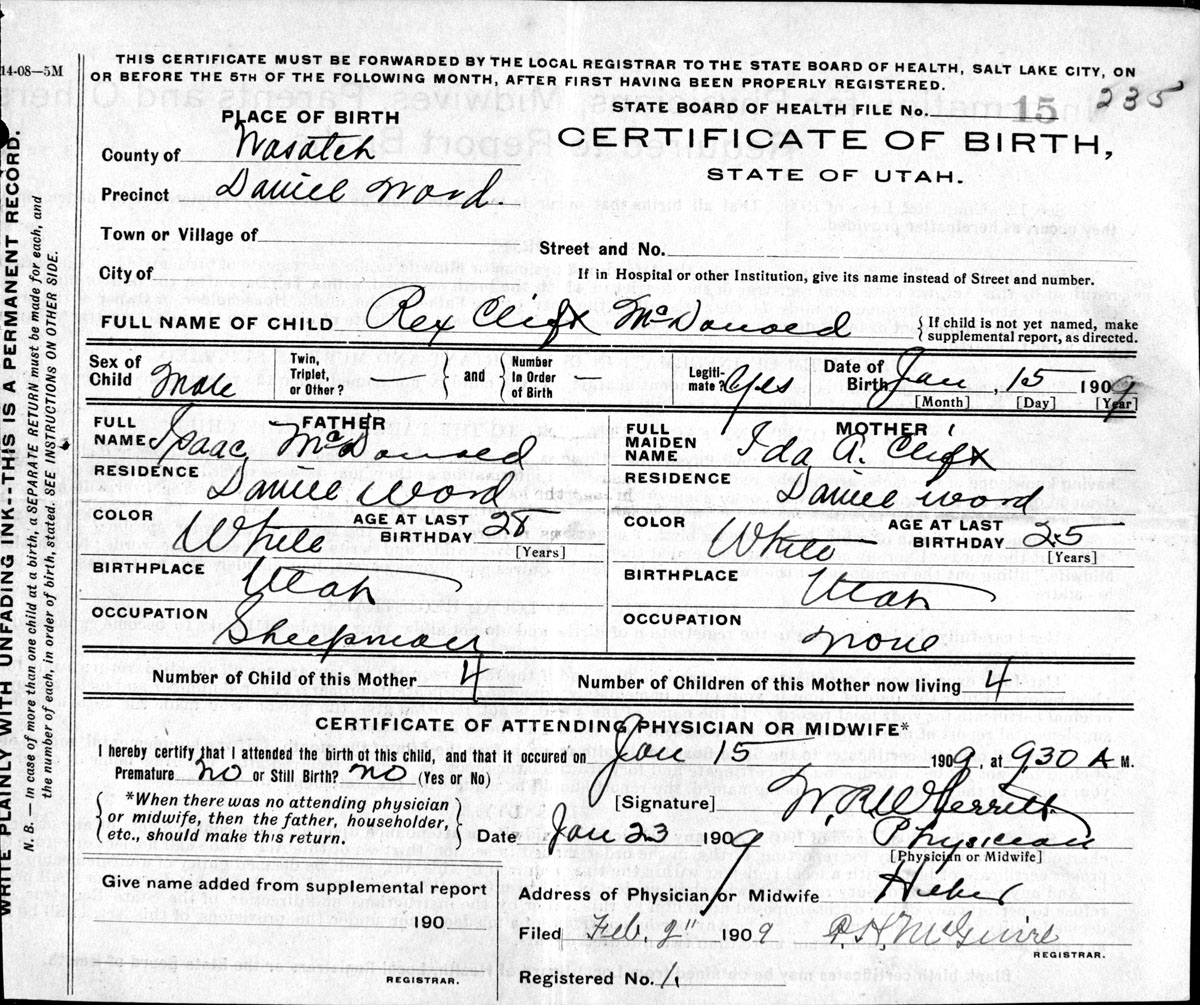 14-08—5M
THIS CERTIFICATE MUST BE FORWARDED BY THE LOCAL REGISTRAR TO THE STATE BOARD OF HEALTH, SALT LAKE CITY, ON
OR BEFORE THE 5TH OF THE FOLLOWING MONTH, AFTER FIRST HAVING BEEN PROPERLY REGISTERED.
STATE BOARD OF HEALTH FILE No. 15 235
PLACE OF BIRTH
CERTIFICATE OF BIRTH,
STATE OF UTAH.
County of Wasatch
Precinct Daniel Ward
Town or Village of
Street and No.
City of
If in Hospital or other Institution, give its name instead of Street and number.
FULL NAME OF CHILD Rex Clift McDonald { If child is not yet named, make
supplemental report, as directed.
Sex of Child Male Twin, Triplet, or Other? — { and } Number In Order of Birth — Legiti-mate? Yes Date of Birth Jan, 15 1909
[Month] [Day] [Year]
FATHER
FULL NAME Isaac McDonald
RESIDENCE Daniel Ward
COLOR White AGE AT LAST BIRTHDAY 28 [Years]
BIRTHPLACE Utah
OCCUPATION Sheepman
MOTHER
FULL MAIDEN NAME Ida A. Clift
RESIDENCE Daniel Ward
COLOR White AGE AT LAST BIRTHDAY 25 [Years]
BIRTHPLACE Utah
OCCUPATION none
Number of Child of this Mother 4 Number of Children of this Mother now living 4
CERTIFICATE OF ATTENDING PHYSICIAN OR MIDWIFE*
I hereby certify that I attended the birth of this child, and that it occured on Jan 15 1909, at 930 A M.
Premature no or Still Birth? no (Yes or No)
{ *When there was no attending physician
or midwife, then the father, householder,
etc., should make this return. }
[Signature] W. R. Wherritt
Date Jan 23 1909 Physician
[Physician or Midwife]
Give name added from supplemental report
190
REGISTRAR.
Address of Physician or Midwife Heber
Filed Feb. 2" 1909 McGuire
REGISTRAR.
Registered No. 1
WRITE PLAINLY WITH UNFADING INK--THIS IS A PERMANENT RECORD.
N. B.— In case of more than one child at a birth, a SEPARATE RETURN must be made for each, and
the number of each, in order of birth, stated. SEE INSTRUCTIONS ON OTHER SIDE.